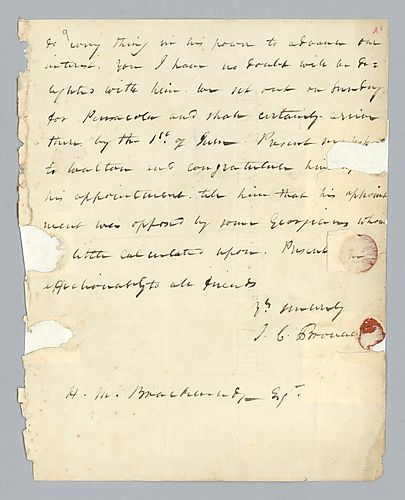 do every thing in his power to advance our
interest. You I have no doubt will be de-
lighted with him. We set out on Sunday
for Pensacola and shall certainly arrive
there by the 1st of June. Present me
to Walton and congratulate him
his appointment. tell him that his appoint
ment was opposed by some Georgians whom
little calculated upon. Present me
affectionately to all friends
Yrs sincerely
J. C. Bronau
H. M. Brackenridge Esqr.